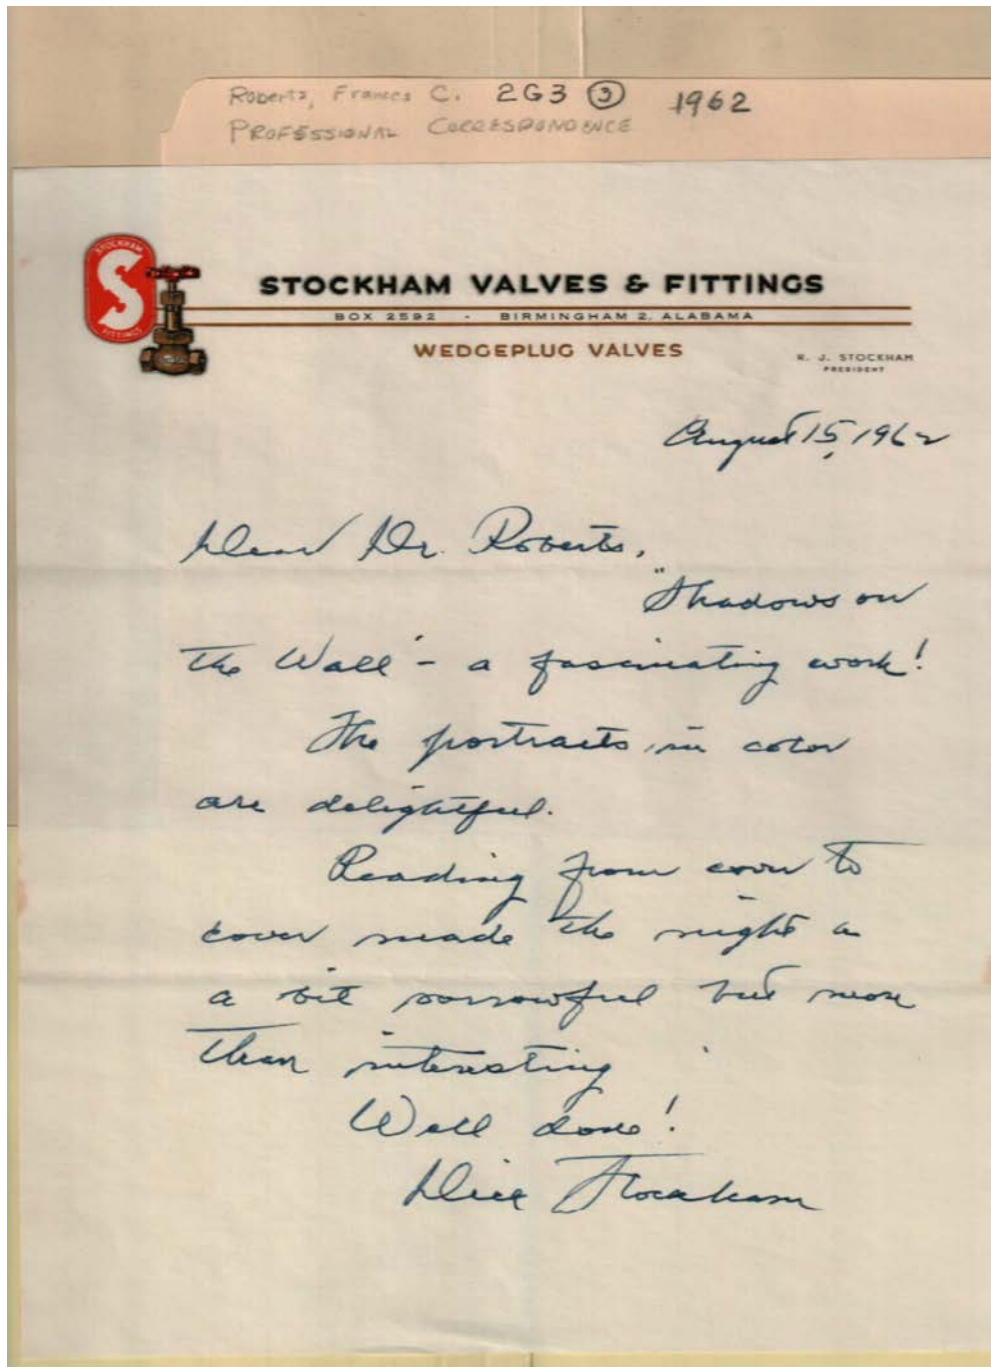 Roberts, Frances C. 2G3 ③ 1962
PROFESSIONAL CORRESPONDENCE
STOCKHAM
S
FITTINGS
STOCKHAM VALVES & FITTINGS
BOX 2592 - BIRMINGHAM 2, ALABAMA
WEDGEPLUG VALVES
R. J. STOCKHAM
PRESIDENT
August 15, 1962
Dear Dr. Roberts,
"Shadows on
the Wall" - a fascinating work!
The portraits in color
are delightful.
Reading from cover to
cover made the night a
a bit sorrowful but more
than interesting
Well done!
Dick Stockham